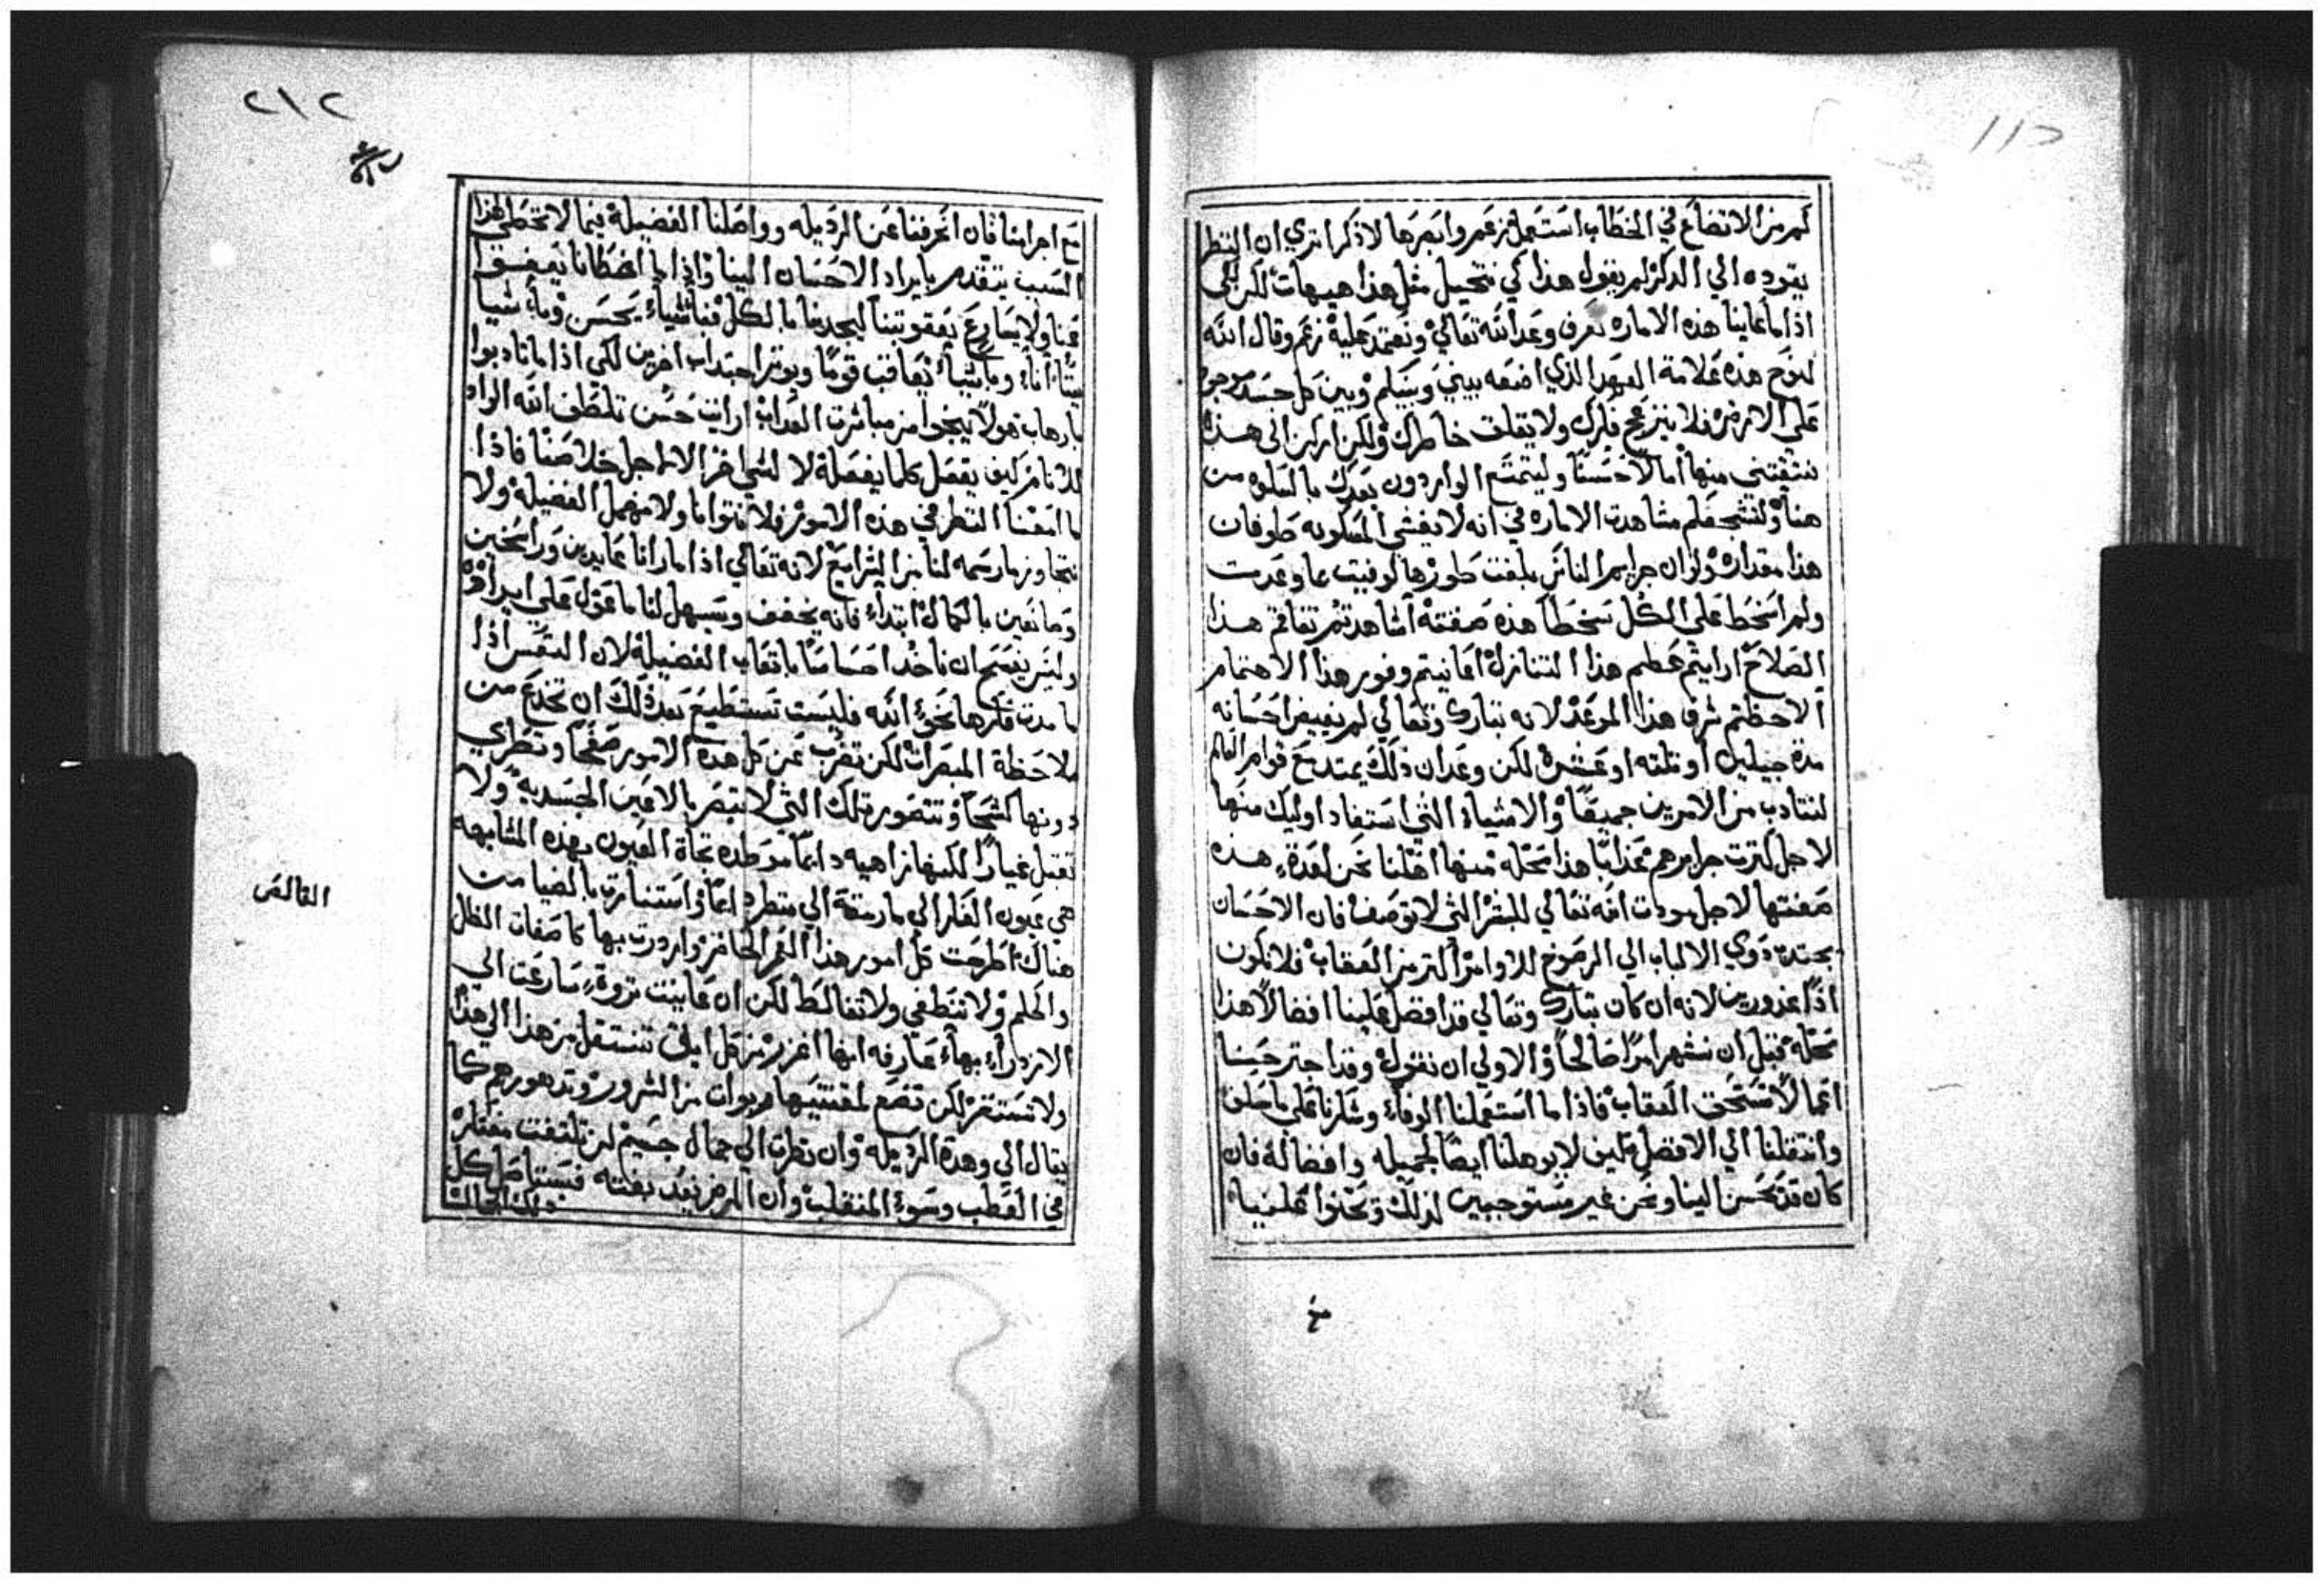 كم من الاتضاع في الخطاب استعمل زعم وابصرها لاذكر اتري ان النظر
يقوده الي الذكر لم يقول هذا كي نتخيل مثل هذا هيهات لكن لكي
اذا ما عاينا هذه الاماره نعرف وعد الله تعالي ونعتمد عليه زعم وقال الله
لنوح هذه علامة العهد الذي اضعه بيني وبينكم وبين كل جسد موجود
علي الارض فلا ينزعج فكرك ولا يقلق خاطرك ولكن اركن الى هذه
تقتني منها امالا حسنا وليتمتع الواردون بعدك بالسلوه من
هنا ولنتتج فلم مشاهدت الاماره في انه لا يغشي المسكونه طوفان
هذا مقداره ولو ان جرايم الناس بلغت طورها لوفيت بما وعدت
ولم اسخط علي الكل سخطا هذه صفته اشاهدتم تفاقم هذا
الصلاح ارايتم عظم هذا التنازل اعاينتم وفور هذا الاهتمام
الاحظتم شرف هذا الموعد لانه تبارك وتعالي لم يغيض احسانه
مدة جيلين او ثلثه او عشرة لكن وعد ان ذلك يمتد مع قوام العالم
لنتادب من الامرين جميعا والاشياء التي استفاد اوليك منها
لاجل كثرت جرايرهم عذابا هذا محله منها اهلنا نحن لغدة هذه
صفتها لاجل مودات الله تعالي للبشر التي لا توصف فان الاحسان
يجتدب ذوي الالباب الي الرضوخ للاوامر اكثر من العقاب فلا نكون
اذا غدورين لانه ان كان تبارك وتعالي قد افضل علينا افضالا هذا
محله قبل ان نشهر امرا صالحا والاولي ان نقول وقد اجترحينا
اعمالا تستحق العقاب فاذا ما استعملنا الوفاء وشكرنا علي ما سلف
وانتقلنا الي الافضل كيف لا يوهلنا ايضا لجميله وافضاله فان
كان قد حسن الينا ونحن غير مستوجبين لذلك وتحنوا علينا
مع اجرامنا فان انحرفنا عن الرذيله وواصلنا الفضيلة فيما لا نحظي لهذا
السبب يتقدم بايراد الاحسان الينا واذا ما اخطانا يصفق
عنا ولا يسارع بعقوبتنا ليجدبنا بالكل فبأشياء يحسن وبأشيا
يتأنا وبأشياء يعاقب قوما ويوثر اجتداب اخرين لكي اذا ما تادبوا
بارهاب هولا ينجوا من مباشرت العداب ارايت حسن تلطف الله الواد
للانام كيف يفضل كلما يفضله لا لشي اخر الا لاجل خلاصنا فاذا
ما امعنا النظر في هذه الامور فلا نتواما ولا نهمل الفضيلة ولا
نتجاوز ما رسمه لنا من الشرايع لانه تعالي اذا ما رانا عايدين وراسخين
وما نعين بالكمال ابتداء فانه يخفف ويسهل لنا ما عول علي ايراده
وليس يفسح ان ناخد احساسا باتعاب الفضيلة لان النفس اذا
ما مدت فكرها نحو الله فليست تستطيع بعد ذلك ان تخدع من
ملاحظة المبصرات لكن تضرب عن كل هده الامور صفحا وتطوي
دونها كشحا وتتصور تلك التي لا تبصر بالاعين الجسديه ولا
تقبل غيارا لكنها زاهيه دايما موطده تجاة العيون بهذه المشابهه
هي عيون الفكر الي ما رمقه الي منظر دايما واستنارت بالضيا من
هناك اطرحت كل امور هذا العمر الحاضر وازدرت بها كاصفات الظل
والحلم ولا تنطغي ولا تغالط لكن ان عاينت ثروة سارعت الي
الازدراء بها عارفه انها اغزر من كل ابلق تنتقل من هذا الي هذا
ولا تستقر لكن تضع لمقتنيها ربوات من الشرور وتدهورهم كما
يقال الي وهدة الرذيله وان نظرت الي جمال جسيم لن تلتفت مفتكره
في العطب وسوء المنقلب وان المرض يعد بغتته فيستاصل كل
ذلك الجمال
القالص
٢١٢